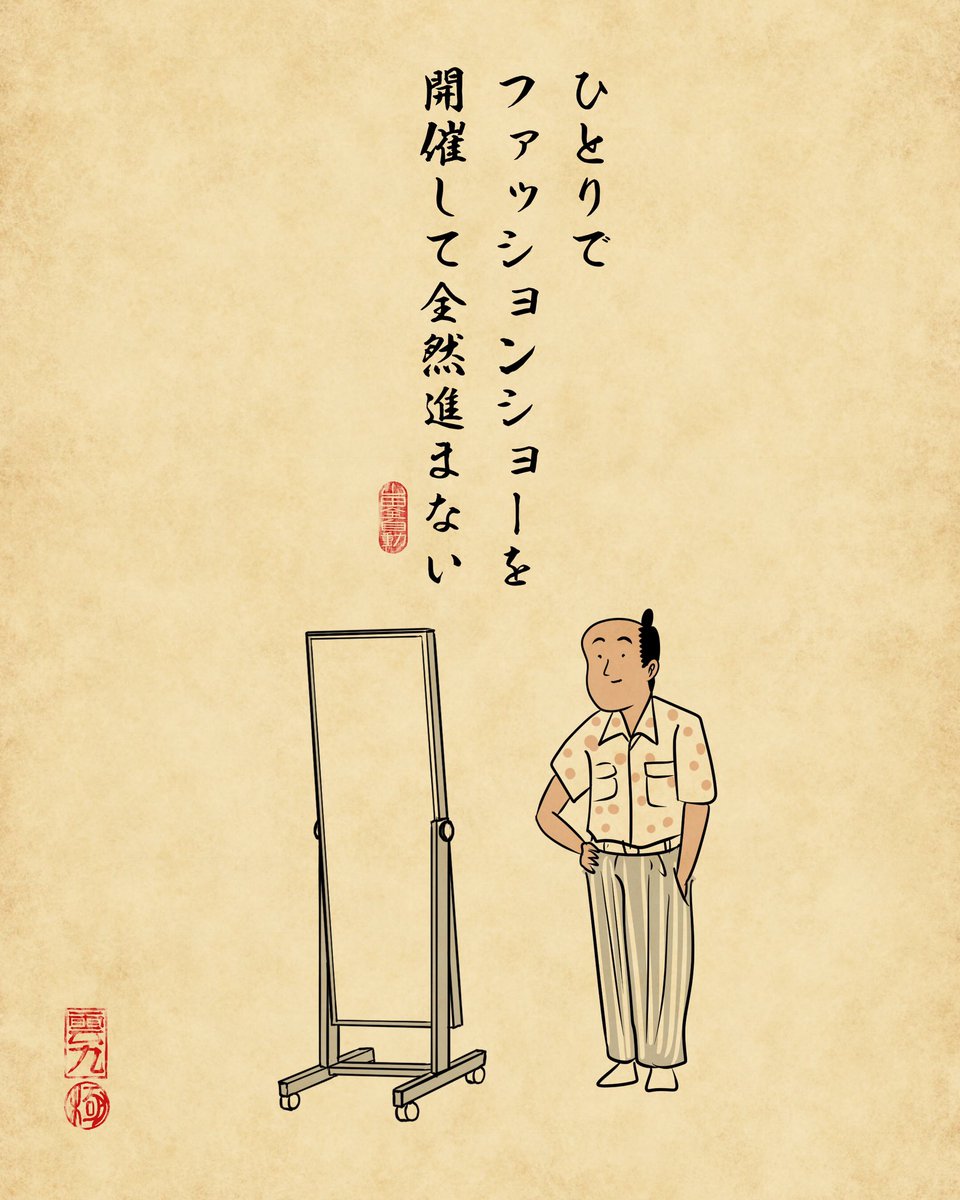 ひとりで
ファッションショーを
開催して全然進まない